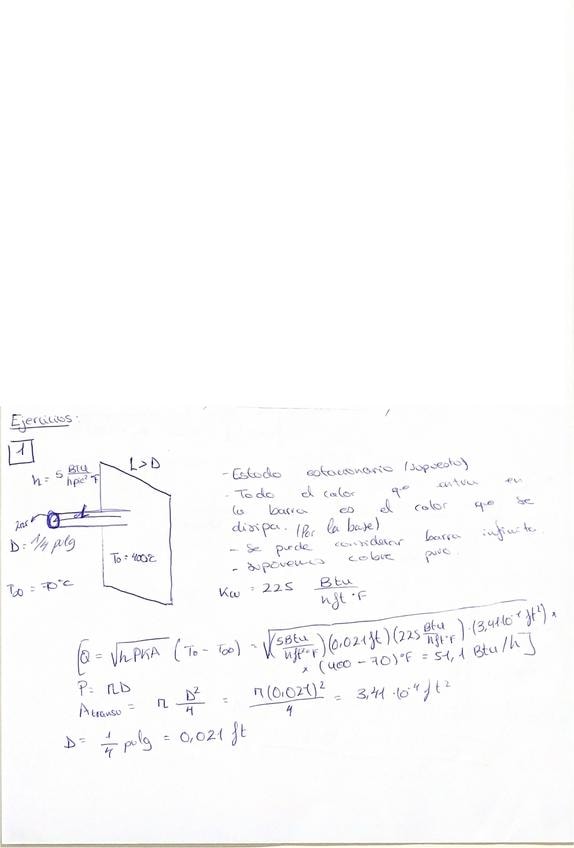 Ejercicios:
1
h = 5 Btu/hpie² °F
L>D
D = 1/4 pulg
T₀ = 400°C
T∞ = 70°C
- Estado estacionario (supuesto)
- Todo el calor que entra en
la barra es el calor que se
disipa. (Por la base)
- Se puede considerar barra infinita
- suponemos cobre puro.
Kcu = 225 Btu/hft °F
[Q = √hPKA (T₀ - T∞) = √(5 Btu/hft² °F)(0,021 ft)(225 Btu/hft °F)·(3,41·10⁻⁴ ft²) ×
× (400 - 70)°F = 51,1 Btu/h]
P = πD
A transv = π D²/4 = π(0,021)²/4 = 3,41·10⁻⁴ ft²
D = 1/4 pulg = 0,021 ft